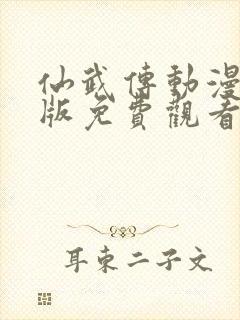 仙武傳動漫
版免費觀看
耳東二子文